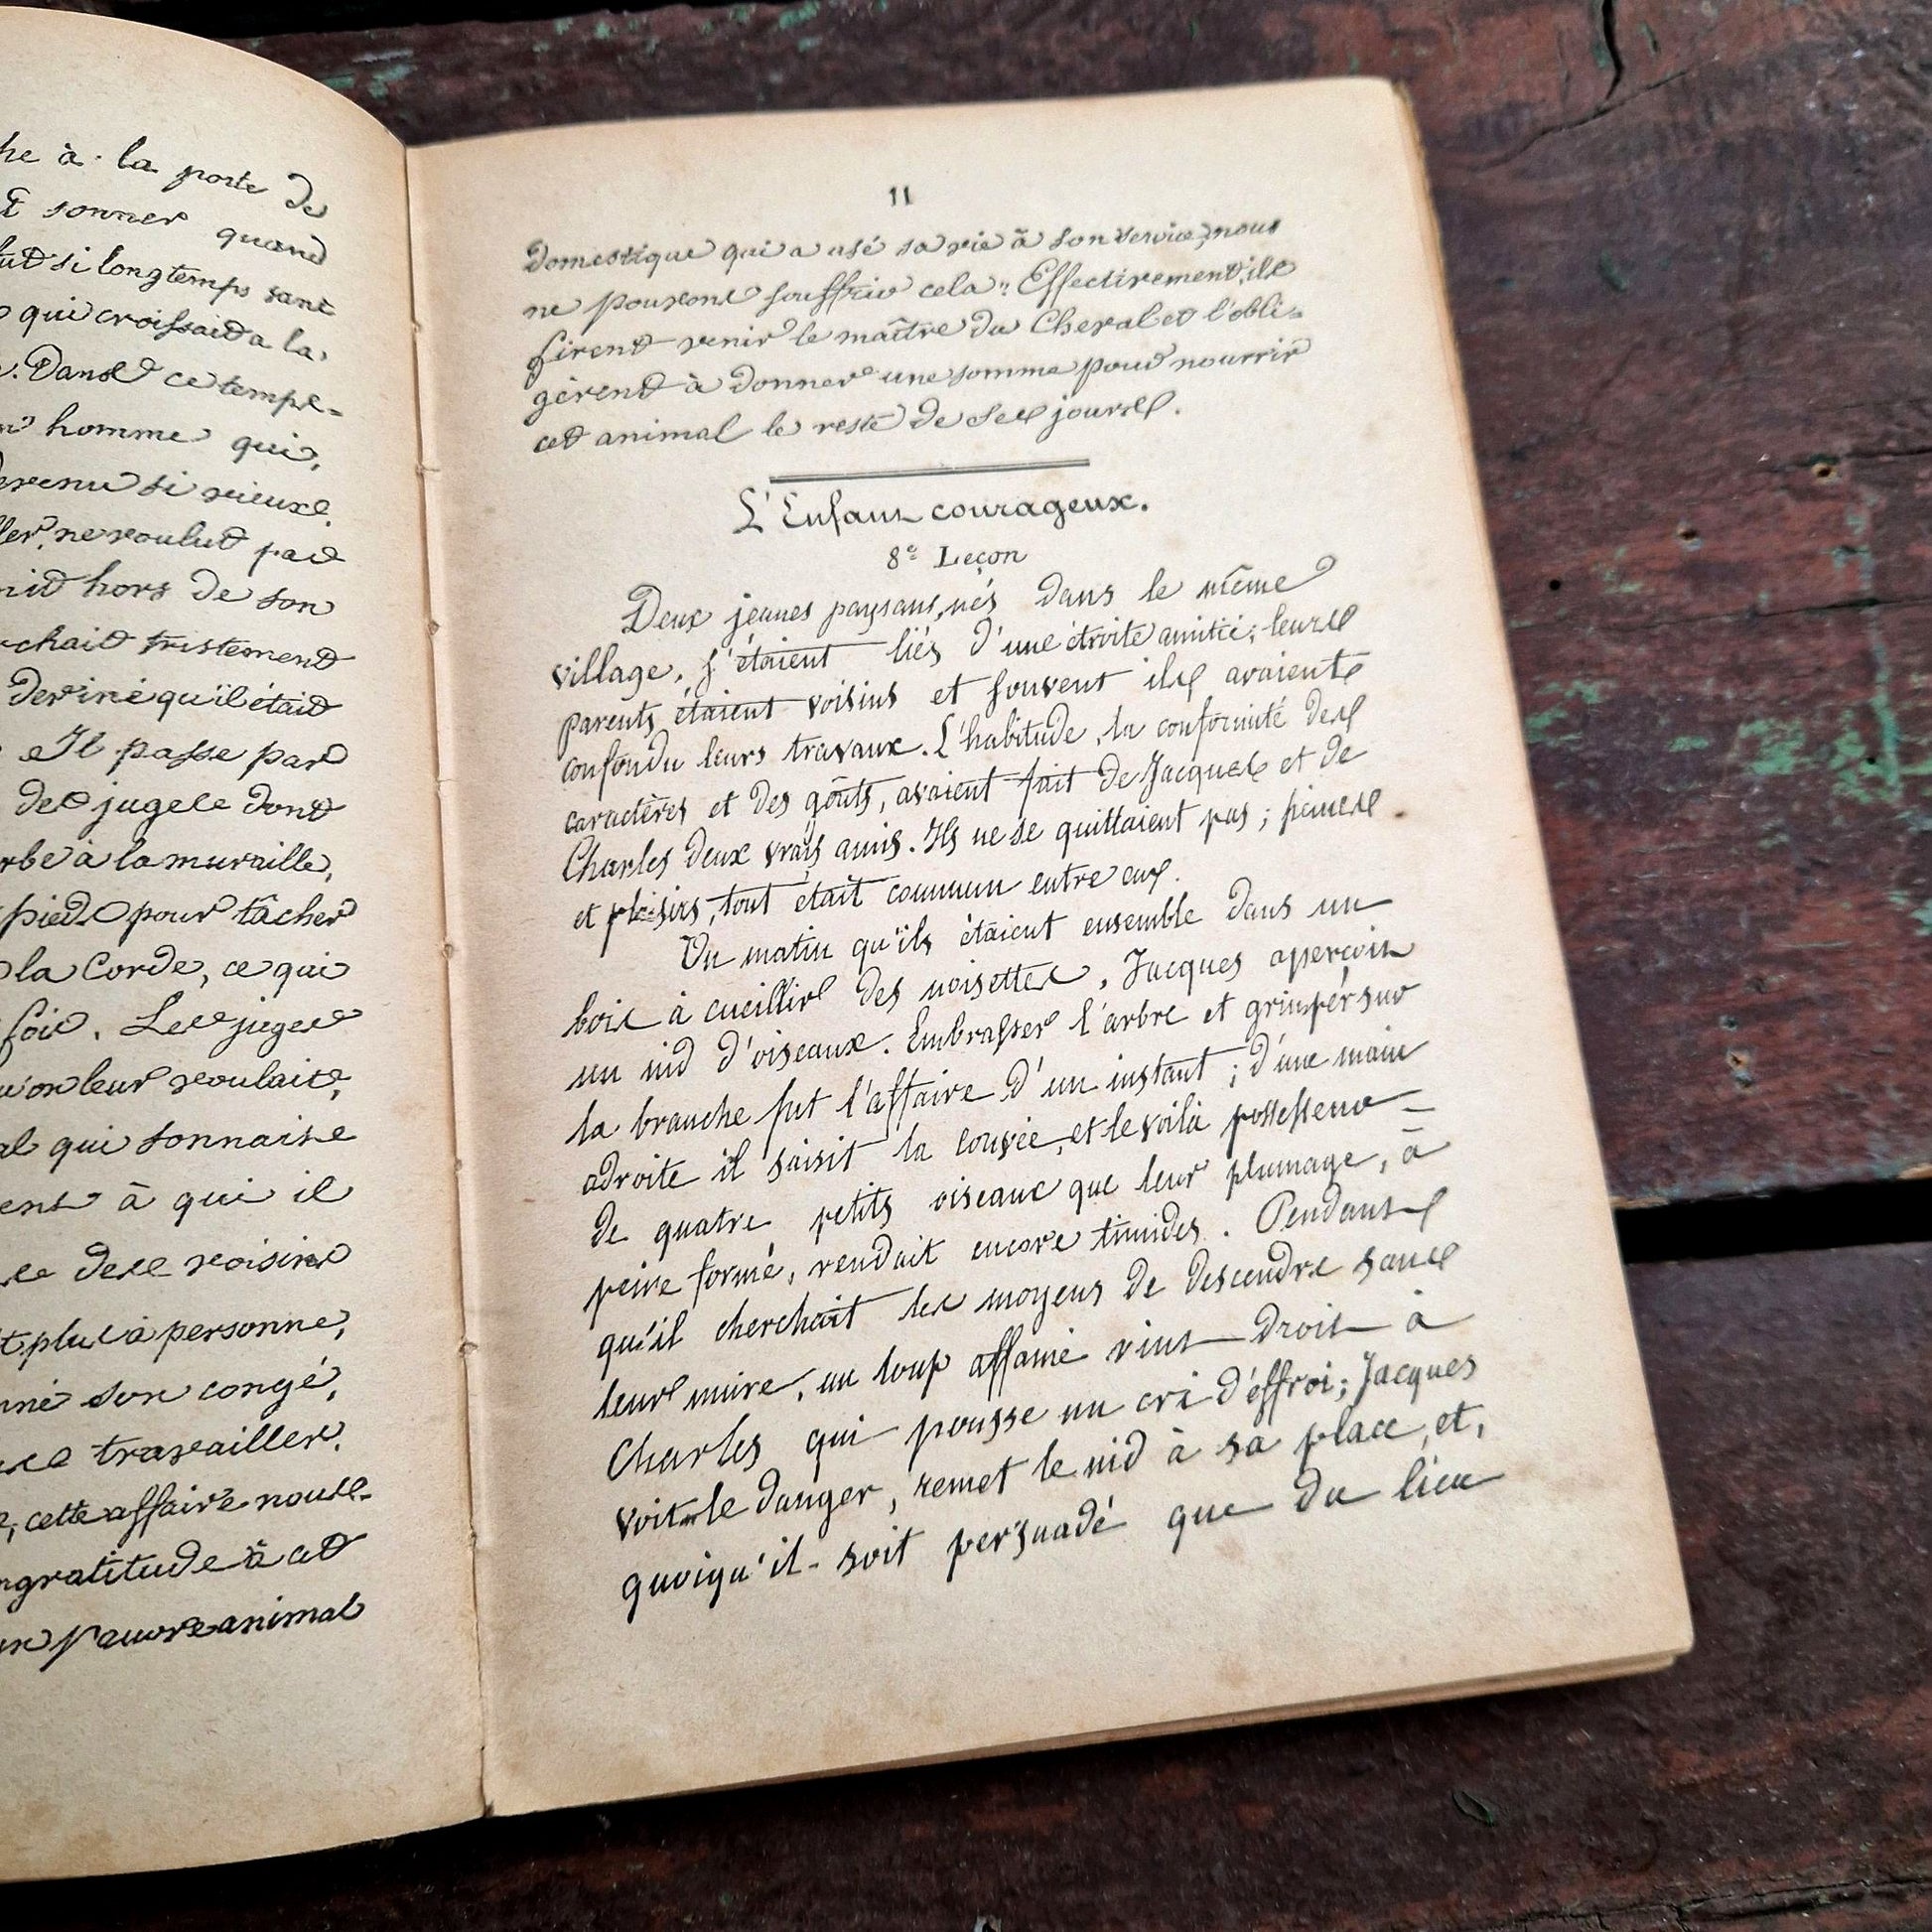 he à la porte de
sonner quand
si longtemps sans
qui croissait à la
. Dans ce temps-
homme qui,
devenu si vieux
, ne voulut pas
hors de son
chait tristement
deviné qu'il était
Il passe par
des juges dont
rbe à la muraille,
pieds pour tâcher
la Corde, ce qui
fois. Les juges
u'on leur voulait,
al qui sonnait
à qui il
des voisins
t plus à personne,
son congé,
travailler.
, cette affaire nous
ngratitude à cet
pauvre animal
11
Domestique qui a usé sa vie à son service, nous
ne pouvons souffrir cela" Effectivement, ils
firent venir le maître du Cheval et l'obli-
gèrent à donner une somme pour nourrir
cet animal le reste de ses jours.
L'Enfant courageux.
8e Leçon
Deux jeunes paysans, nés dans le même
village, s'étaient liés d'une étroite amitié; leurs
parents étaient voisins et souvent ils avaient
confondu leurs travaux. L'habitude, la conformité des
caractères et des goûts, avaient fait de Jacques et de
Charles deux vrais amis. Ils ne se quittaient pas; peines
et plaisirs, tout était commun entre eux.
Un matin qu'ils étaient ensemble dans un
bois à cueillir des noisettes, Jacques aperçoit
un nid d'oiseaux. Embrasser l'arbre et grimper sur
la branche fut l'affaire d'un instant; d'une main
adroite il saisit la couvée, et le voilà possesseur
de quatre petits oiseaux que leur plumage, à
peine formé, rendait encore timides. Pendant
qu'il cherchait les moyens de descendre sans
leur nuire, un loup affamé vint droit à
Charles qui pousse un cri d'effroi; Jacques
voit le danger, remet le nid à sa place, et,
quoiqu'il soit persuadé que du lieu